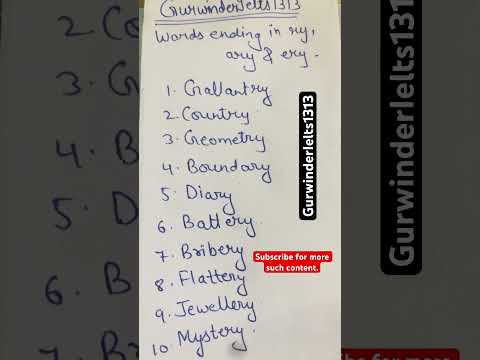 GurwinderIelts1313
Words ending in ry,
ary & ery.
1. Gallantry
2. Country
3. Geometry
4. Boundary
5. Diary
6. Battery
7. Bribery
8. Flattery
9. Jewellery
10. Mystery.
GurwinderIelts1313
Subscribe for more
such content.
2. Cou
3. G
4. B
5. D
6. B
7. B